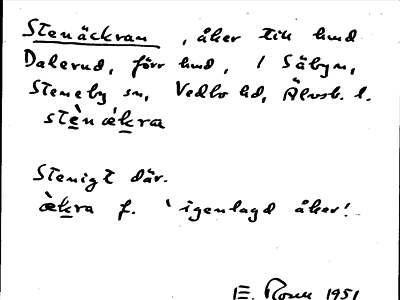 Stenäckran, åker till hmd
Dalerud, förr hmd, i Säbyn,
Steneby sn, Vedbo hd, Älvsb. l.
stè̱næ̀ḵra
Stenigt där.
æ̀ḵra f. 'igenlagd åker'.
E. Rosen 1951